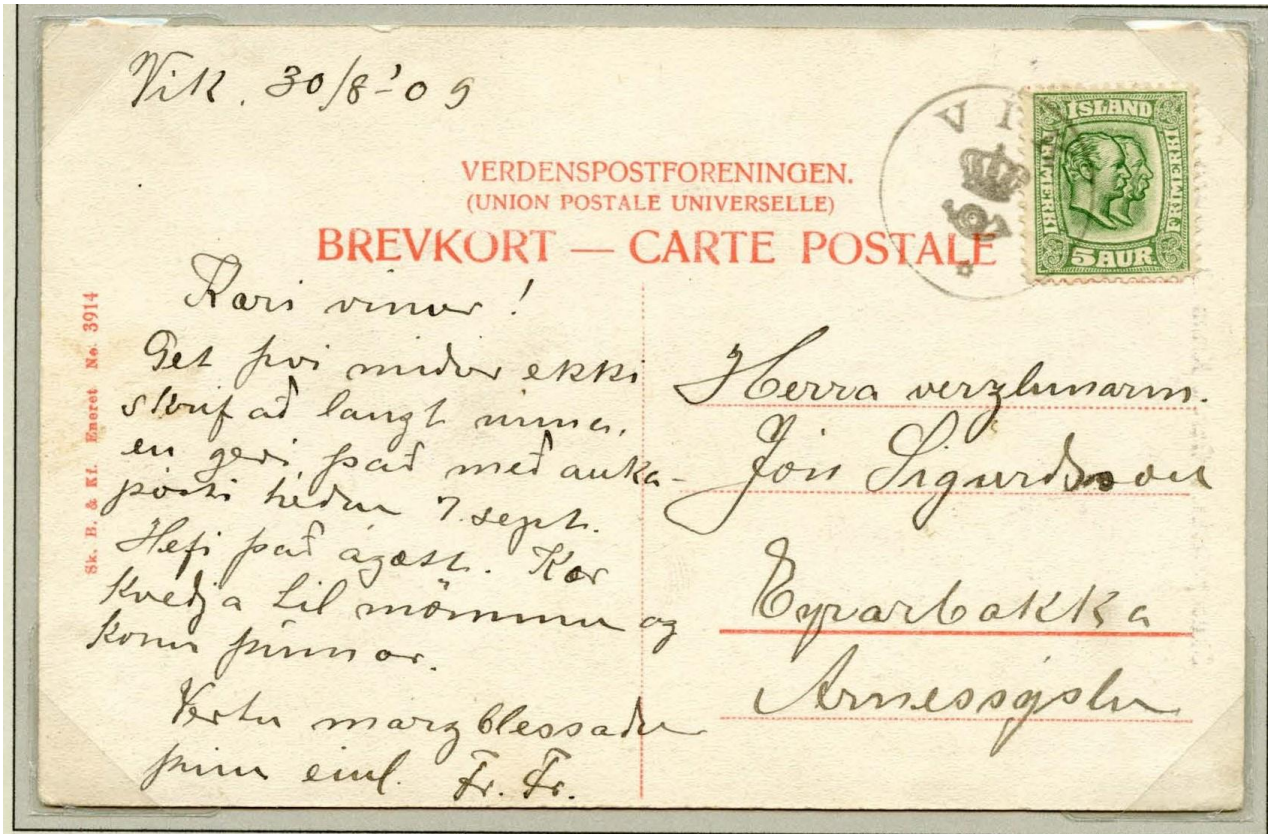 Vik. 30/8-'09
VERDENSPOSTFORENINGEN.
(UNION POSTALE UNIVERSELLE)
BREVKORT — CARTE POSTALE
VIK
ISLAND
FRÍMERKI
FRÍMERKI
5 AUR
Sk. B. & Kf. Eneret No. 3914
Kæri vinur!
Get því miður ekki
skrifað langt núna,
en geri það með auka-
pósti héðan 7. sept.
Hefi það ágætt. Kær
kveðja til mömmu og
konu þinnar.
Vertu margblessaður
þinn einl. Fr. Fr.
Herra verzlunarm.
Jón Sigurðsson
Eyrarbakka
Árnessýslu